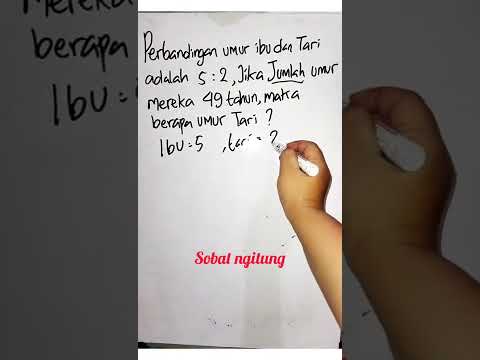 Perbandingan umur ibu dan Tari
adalah 5:2, Jika Jumlah umur
mereka 49 tahun, maka
berapa umur Tari ?
Ibu = 5 , tari = ?
Sobat ngitung
mereka
berapa
Ibu =
mur
?